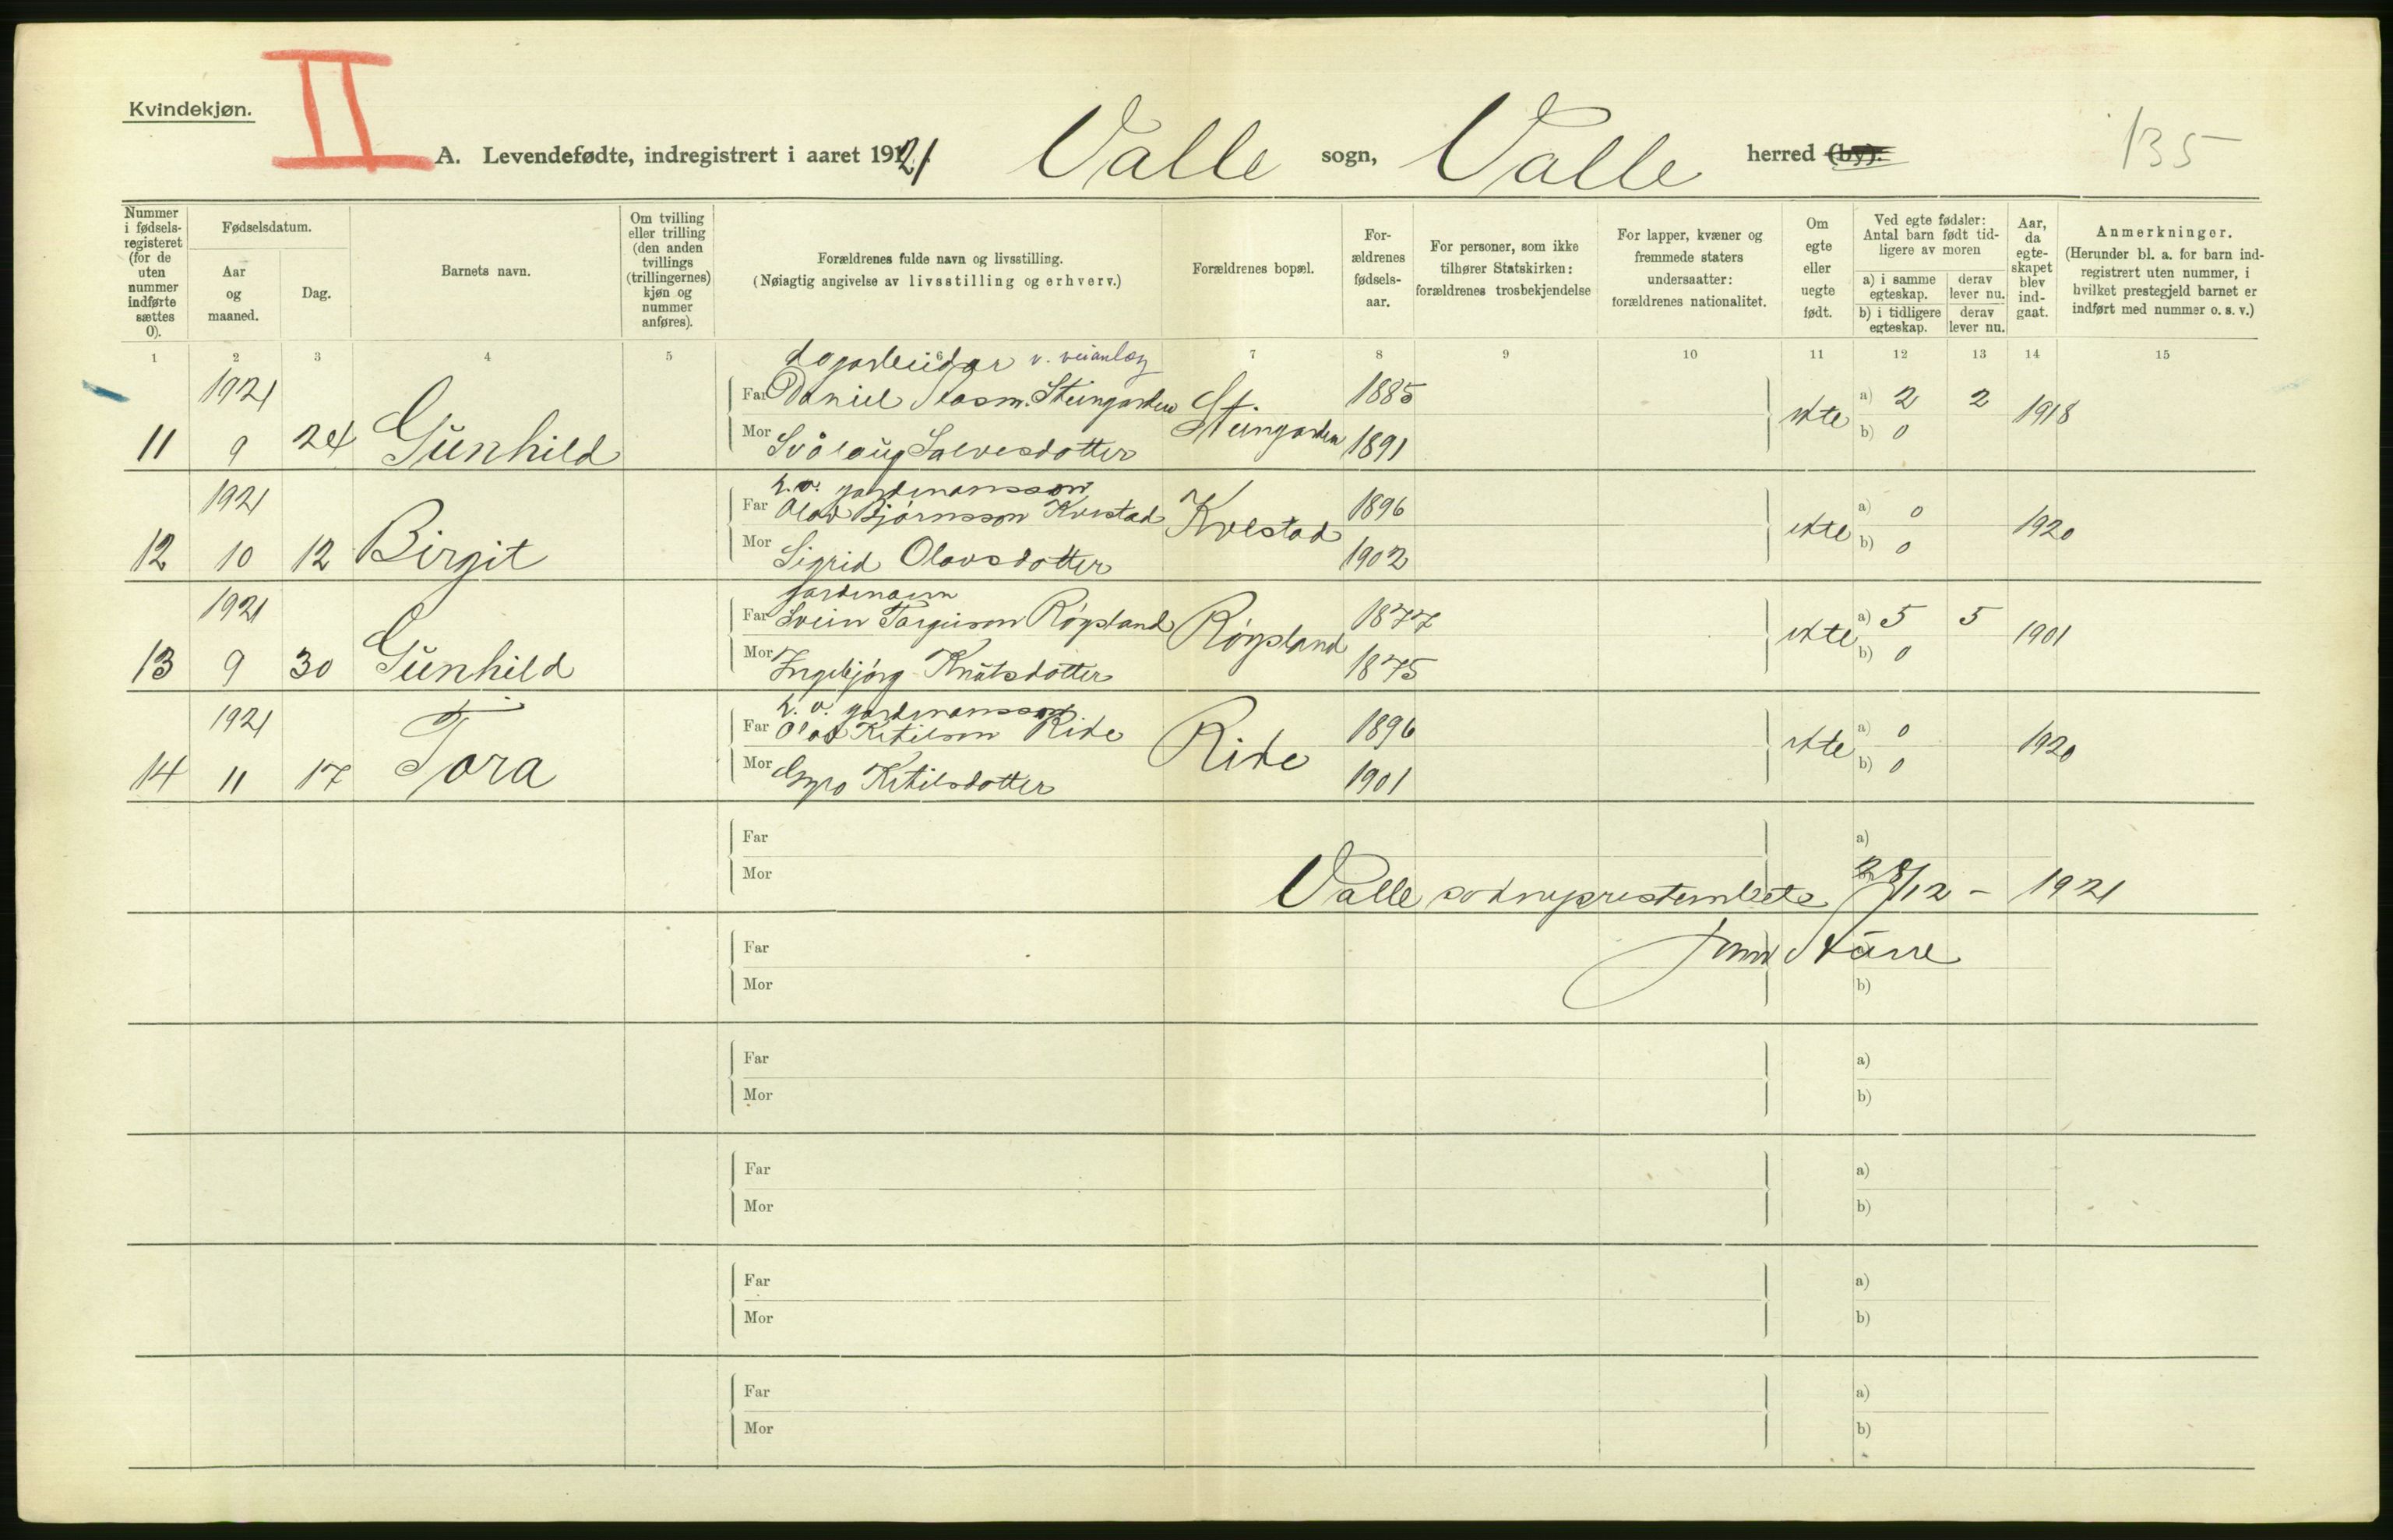 Kvindekjøn.
II
A. Levendefødte, indregistrert i aaret 1921. Valle sogn, Valle herred (by).
135
Nummer i fødselsregisteret (for de uten nummer indførte sættes 0).
Fødselsdatum.
Aar og maaned.
Dag.
Barnets navn.
Om tvilling eller trilling (den anden tvillings (trillingernes) kjøn og nummer anføres).
Forældrenes fulde navn og livsstilling.
(Nøiagtig angivelse av livsstilling og erhverv.)
Forældrenes bopæl.
Forældrenes fødselsaar.
For personer, som ikke tilhører Statskirken: forældrenes trosbekjendelse
For lapper, kvæner og fremmede staters undersaatter: forældrenes nationalitet.
Om egte eller uegte født.
Ved egte fødsler: Antal barn født tidligere av moren
a) i samme egteskap.
derav lever nu.
b) i tidligere egteskap.
derav lever nu.
Aar, da egteskapet blev indgaat.
Anmerkninger.
(Herunder bl. a. for barn indregistrert uten nummer, i hvilket prestegjeld barnet er indført med nummer o. s. v.)
1 2 3 4 5 6 7 8 9 10 11 12 13 14 15
dagarbeidar v. veianlæg
1921 Far Daniel Steingarden St. 1885 a) 2 2
11 9 24 Gunhild Mor Svålaug Salvesdotter Steingarden 1891 ekte b) 0 1918
g. v. gardmansson
1921 Far Olav Bjørnsson Kvestad Kvestad 1896 a) 0
12 10 12 Birgit Mor Sigrid Olavsdotter 1902 ekte b) 0 1920
gardmann
1921 Far Svein Targeison Røysland Røysland 1877 a) 5 5
13 9 30 Gunhild Mor Ingebjørg Knutsdotter 1875 ekte b) 0 1901
g. v. gardmansson
1921 Far Olav Ketilson Rike Rike 1896 a) 0
14 11 17 Tora Mor Gyro Ketilsdotter 1901 ekte b) 0 1920
Far a)
Mor b)
Valle sokneprestembete 28/12 - 1921
Far
Mor b)
Far a)
Mor b)
Far a)
Mor b)
Far a)
Mor b)
Far a)
Mor b)